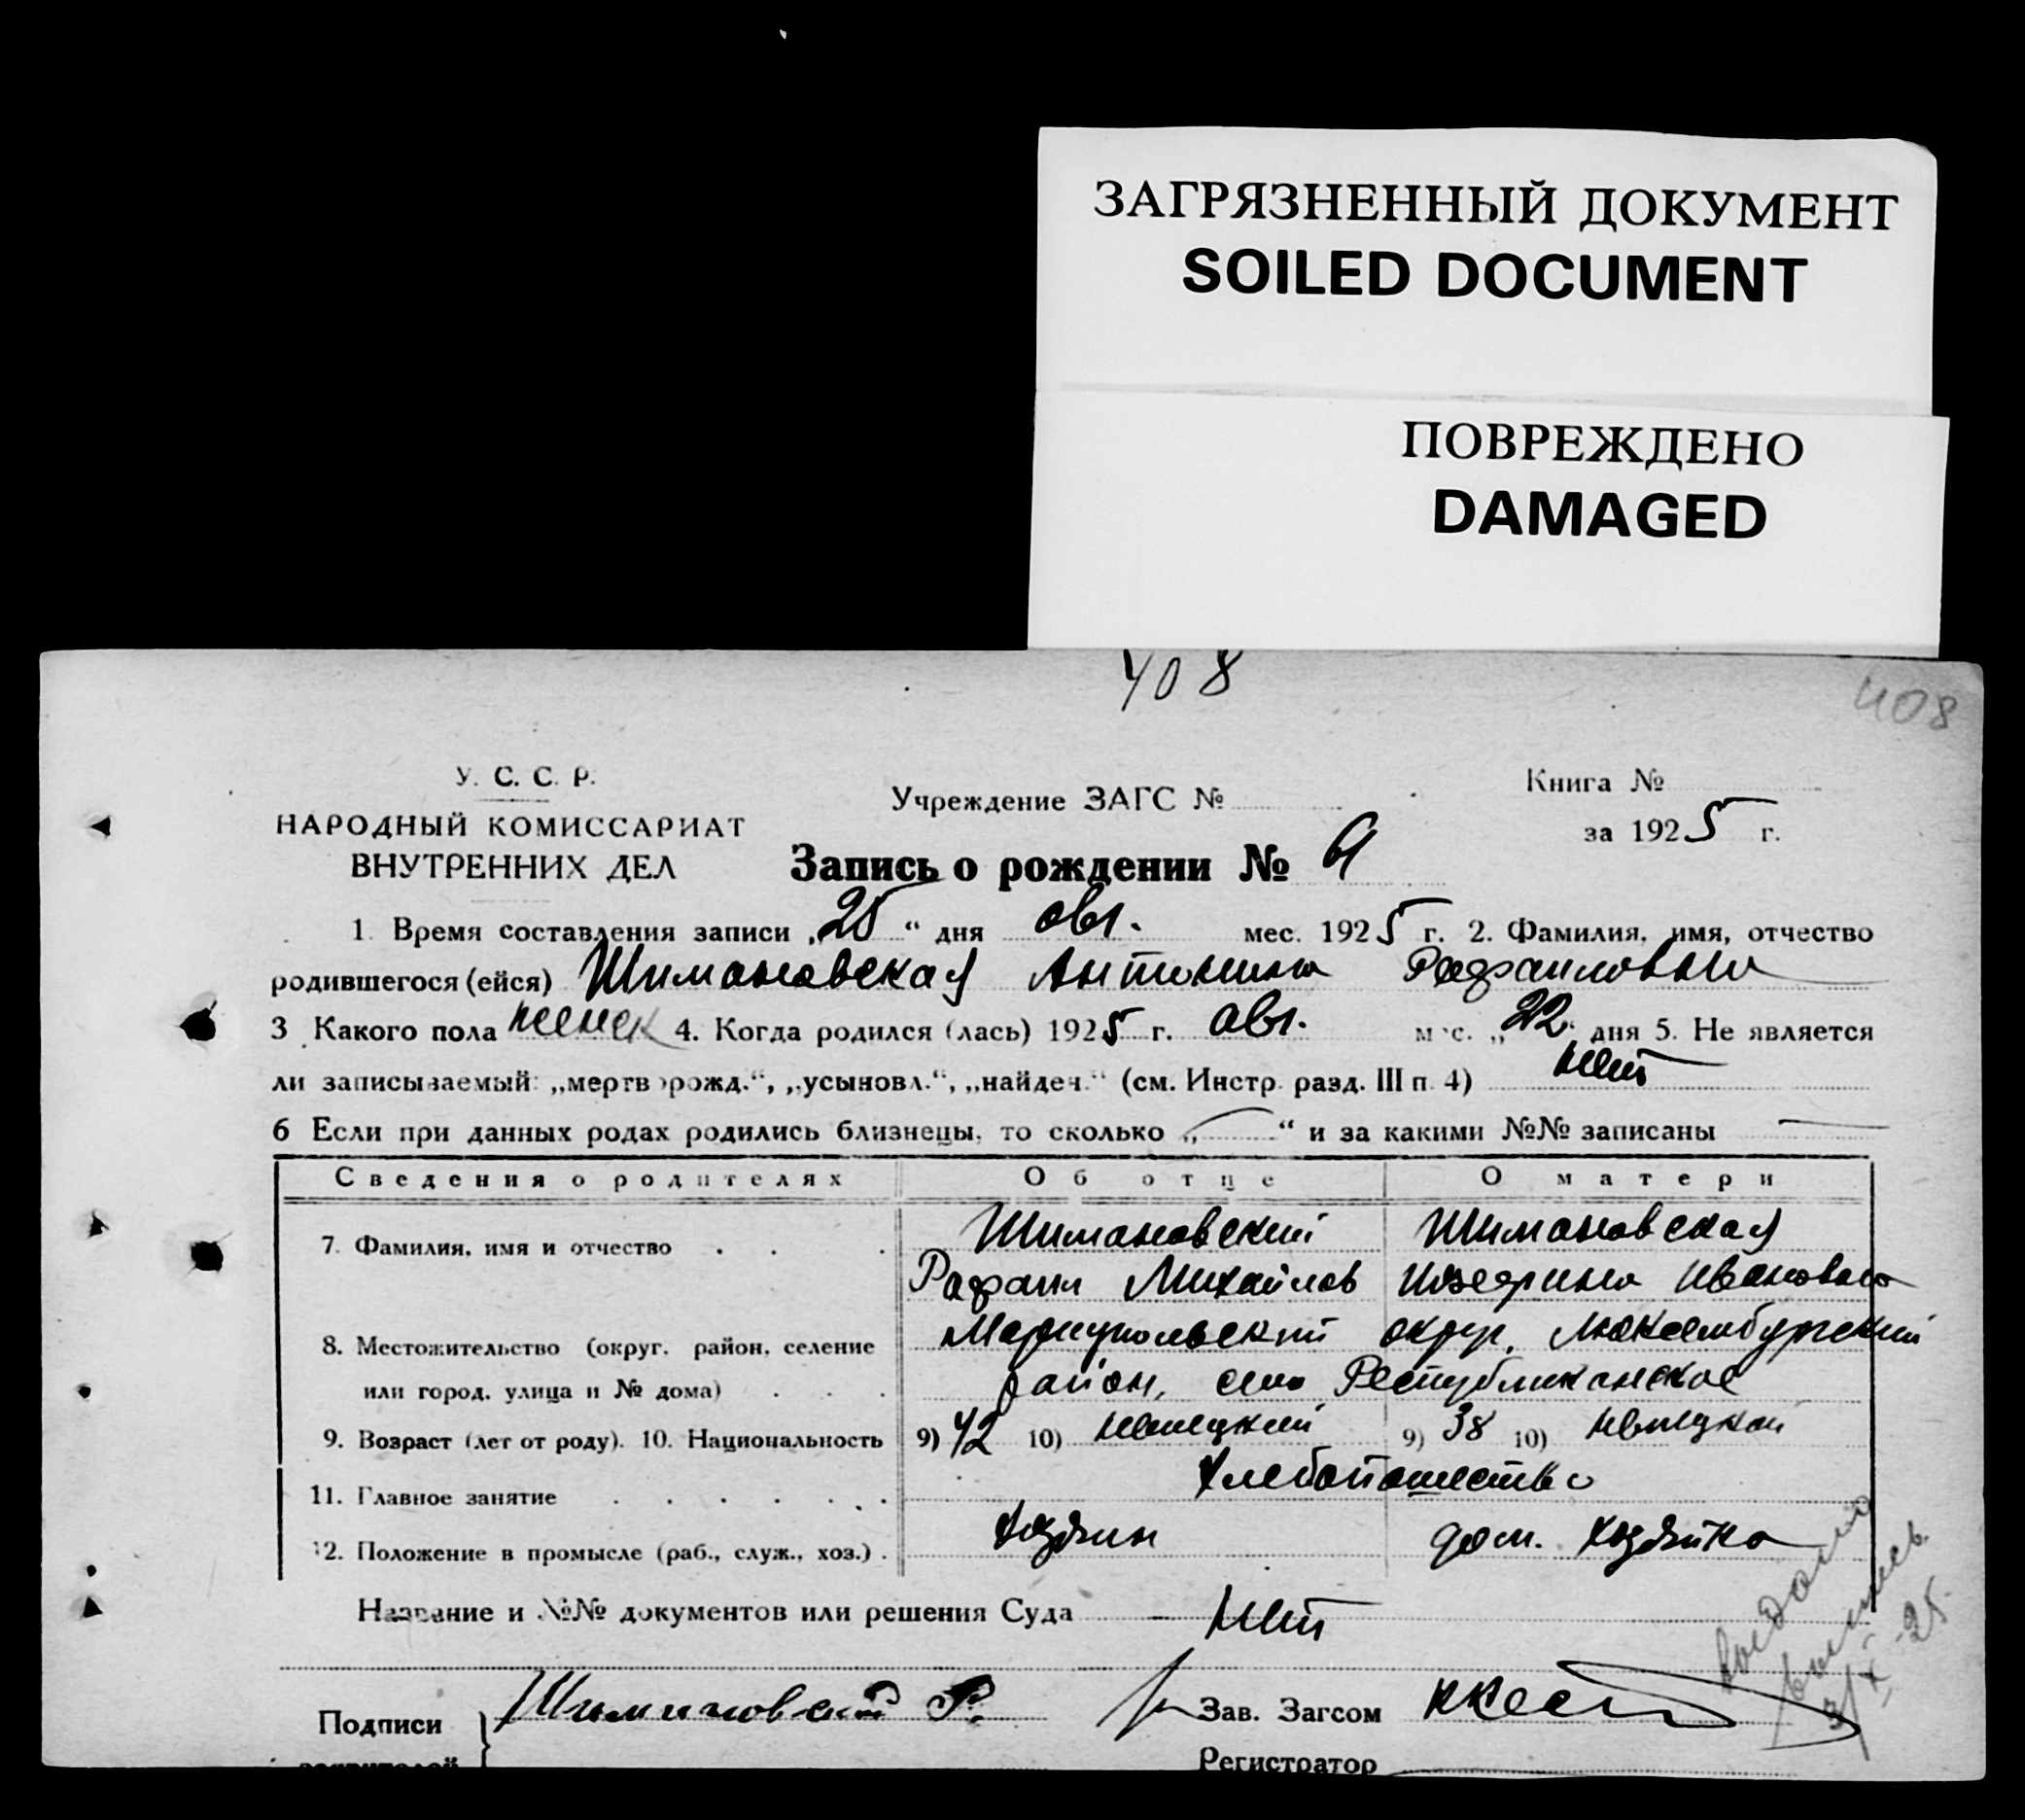 ЗАГРЯЗНЕННЫЙ ДОКУМЕНТ
SOILED DOCUMENT
ПОВРЕЖДЕНО
DAMAGED
408
408
У. С. С. Р.
НАРОДНЫЙ КОМИССАРИАТ
ВНУТРЕННИХ ДЕЛ
Учреждение ЗАГС №
Книга №
за 1925 г.
Запись о рождении №
1. Время составления записи „25“ дня авг. мес. 1925 г. 2. Фамилия, имя, отчество
родившегося (ейся) Шимановская Антонина Рафаиловна
3 Какого пола женск 4. Когда родился (лась) 1925 г. авг. мес. „22“ дня 5. Не является
ли записываемый: „мертворожд.“, „усыновл.“, „найден.“ (см. Инстр. разд. III п. 4) нет
6 Если при данных родах родились близнецы, то сколько „—“ и за какими №№ записаны —
Сведения о родителях Об отце О матери
7. Фамилия, имя и отчество . . . Шимановский Шимановская
Рафаил Михайлов Юзефина Ивановна
8. Местожительство (округ, район, селение Мариупольский округ, Люксембургский
или город, улица и № дома) . . . район, село Республиканское
9. Возраст (лет от роду). 10. Национальность 9) 42 10) немецкий 9) 38 10) немецкой
11. Главное занятие . . . . . . . Хлебопашество
12. Положение в промысле (раб., служ., хоз.) . Хозяин дом. хозяйка
Название и №№ документов или решения Суда — нет
Подписи } Шимановский Р. Зав. Загсом
заявителей Регистратор
выдана
выпись